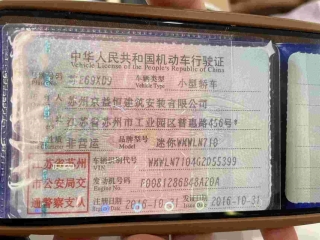 中华人民共和国机动车行驶证
Vehicle License of the People's Republic of China
车辆类型 小型轿车
Vehicle Type
苏州京益恒建筑安装有限公司
江苏省苏州市工业园区普惠路456号
非营运 品牌型号 迷你WMWLN710
Model
江苏省苏州 车辆识别代号 WMWLN7104G2D55399
VIN
市公安局交 发动机号码 FD081286B48A20A
Engine No.
通警察支人 注册日期 2016-10-31 发证日期 2016-10-31